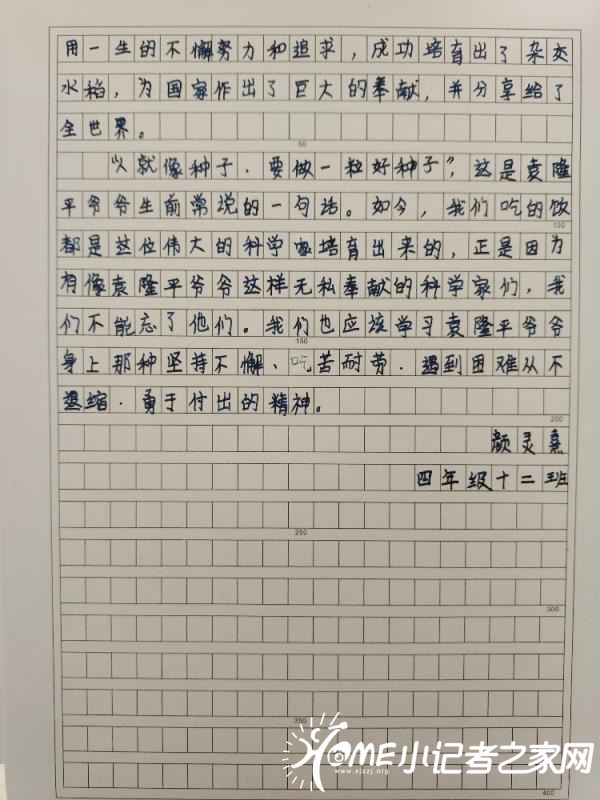 用一生的不懈努力和追求，成功培育出了杂交
水稻，为国家作出了巨大的奉献，并分享给了
全世界。
50
“人就像种子．要做一粒好种子”，这是袁隆
平爷爷生前常说的一句话。如今，我们吃的饭
100
都是这位伟大的科学家培育出来的，正是因为
有像袁隆平爷爷这样无私奉献的科学家们，我
们不能忘了他们。我们也应该学习袁隆平爷爷
150
身上那种坚持不懈、吃苦耐劳．遇到困难从不
退缩．勇于付出的精神。
200
颜灵熹
四年级十二班
250
300
350
HOME小记者之家网
www.xjzzj.org
400